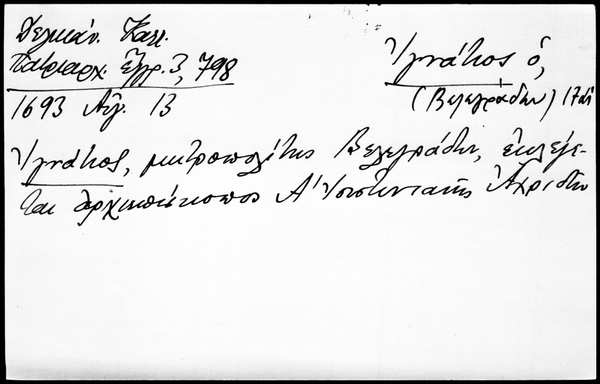 Δελικάν. Καλλ.
Πατριαρχ. ἔγγρ. 3, 798
1693 Αὐγ. 13
Ἰγνάτιος ὁ,
(Βελεγράδων) 17αι
Ἰγνάτιος, μητροπολίτης Βελεγράδων, ἐκλέγε-
ται ἀρχιεπίσκοπος Α' Ἰουστινιανῆς Ἀχριδῶν